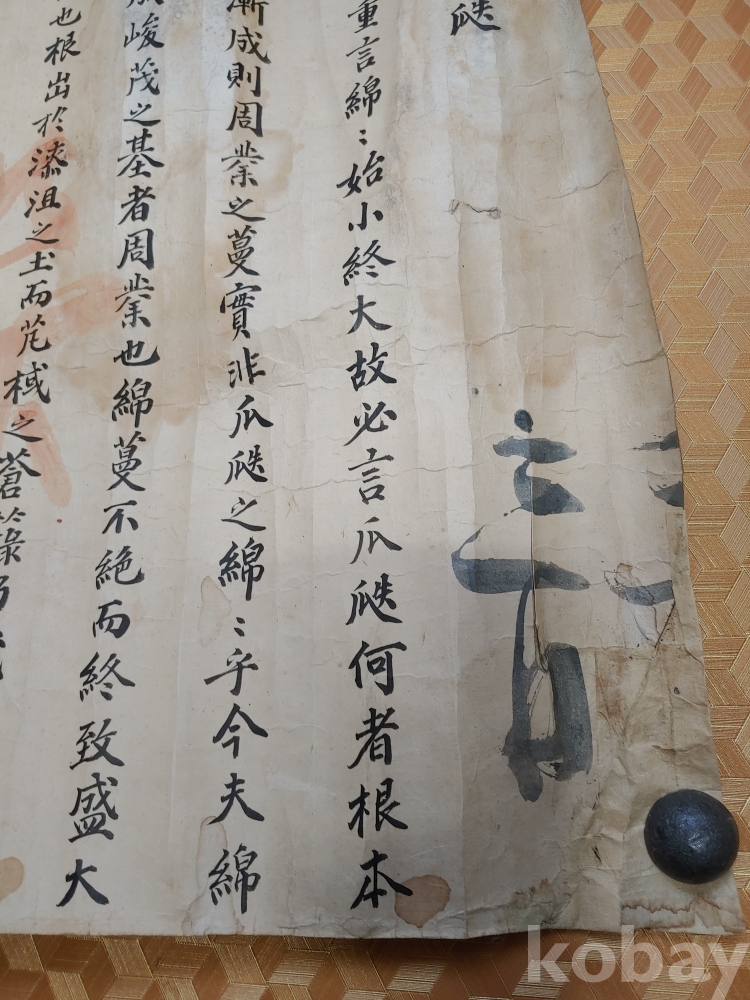 瓞
重言綿〻始小終大故必言瓜瓞何者根本
漸成則周業之蔓實非瓜瓞之綿〻乎今夫綿
峻茂之基者周業也綿蔓不絶而終致盛大
也根出於漆沮之土而芃棫之蒼
kobay